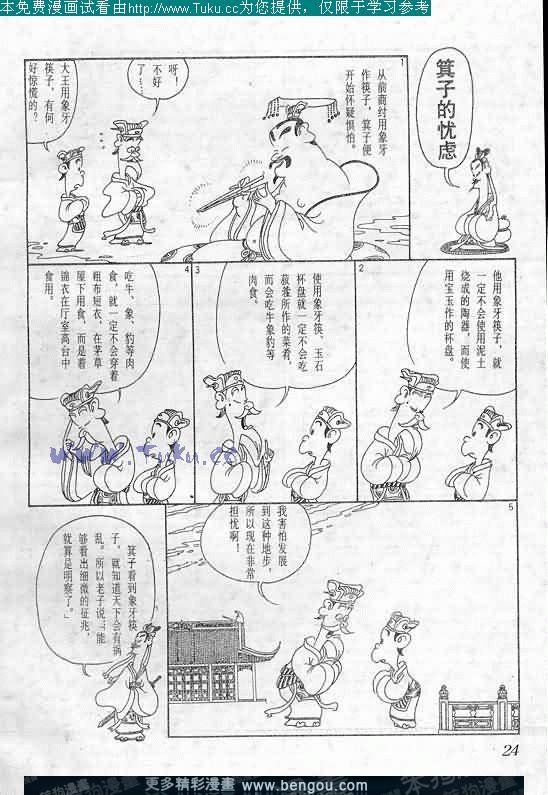 本免费漫画试看由http://www.Tuku.cc为您提供，仅限于学习参考
箕子的忧虑
1
从前商纣用象牙
作筷子，箕子便
开始怀疑惧怕。
呀！
不好
了…
大王用象牙
筷子，有何
好惊慌的？
2
他用象牙筷子，就
一定不会使用泥土
烧成的陶器，而使
用宝玉作的杯盘。
3
使用象牙筷、玉石
杯盘就一定不会吃
菽藿所作的菜肴，
而会吃牛象豹等
肉食。
4
吃牛、象、豹等肉
食，就一定不会穿着
粗布短衣，在茅草
屋下用食，而是着
锦衣在厅室高台中
食用。
www.Tuku.cc
5
我害怕发展
到这种地步，
所以现在非常
担忧啊！
箕子看到象牙筷
子，就知道天下会有祸
乱。所以老子说「能
够看出细微的征兆，
就算是明察了。」
24
更多精彩漫畫 www.bengou.com